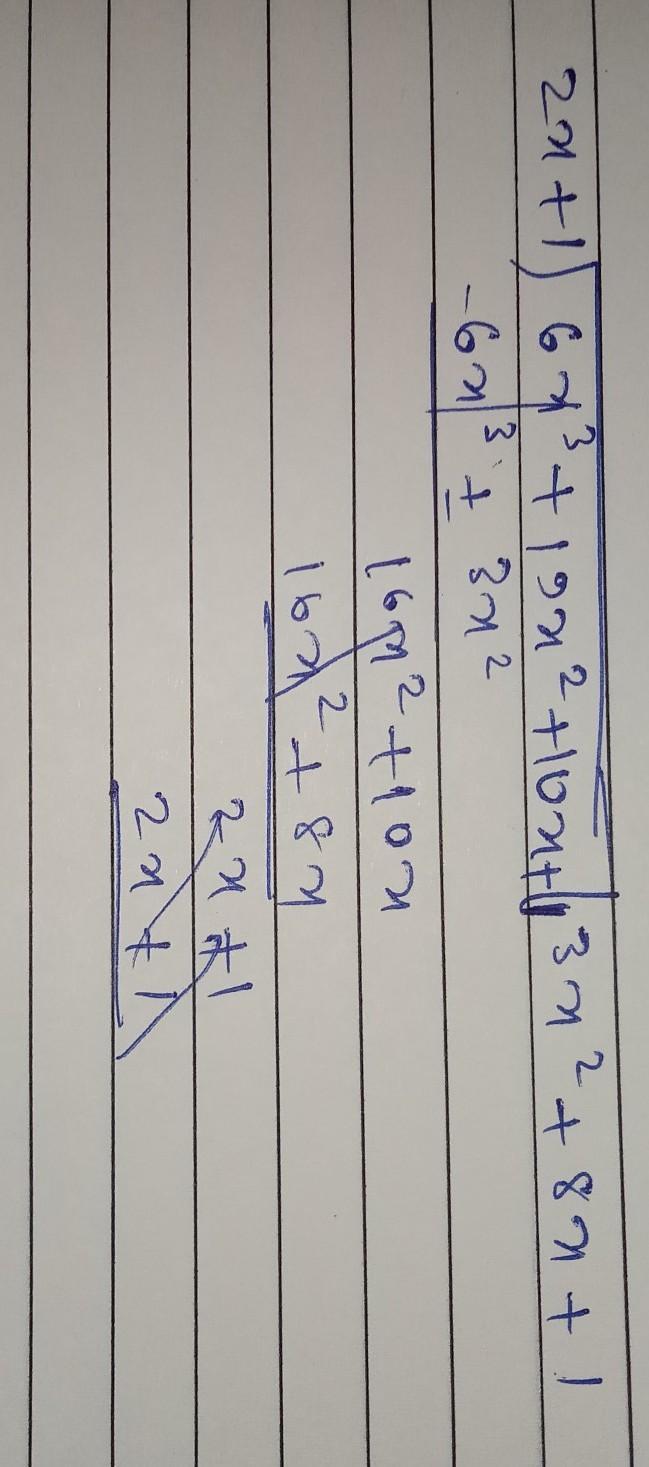 2x+1) 6x³ + 19x² +10x+1 | 3x² + 8x + 1
-6x³ ± 3x²
16x² +10x
16x² + 8x
2x +1
2x +1